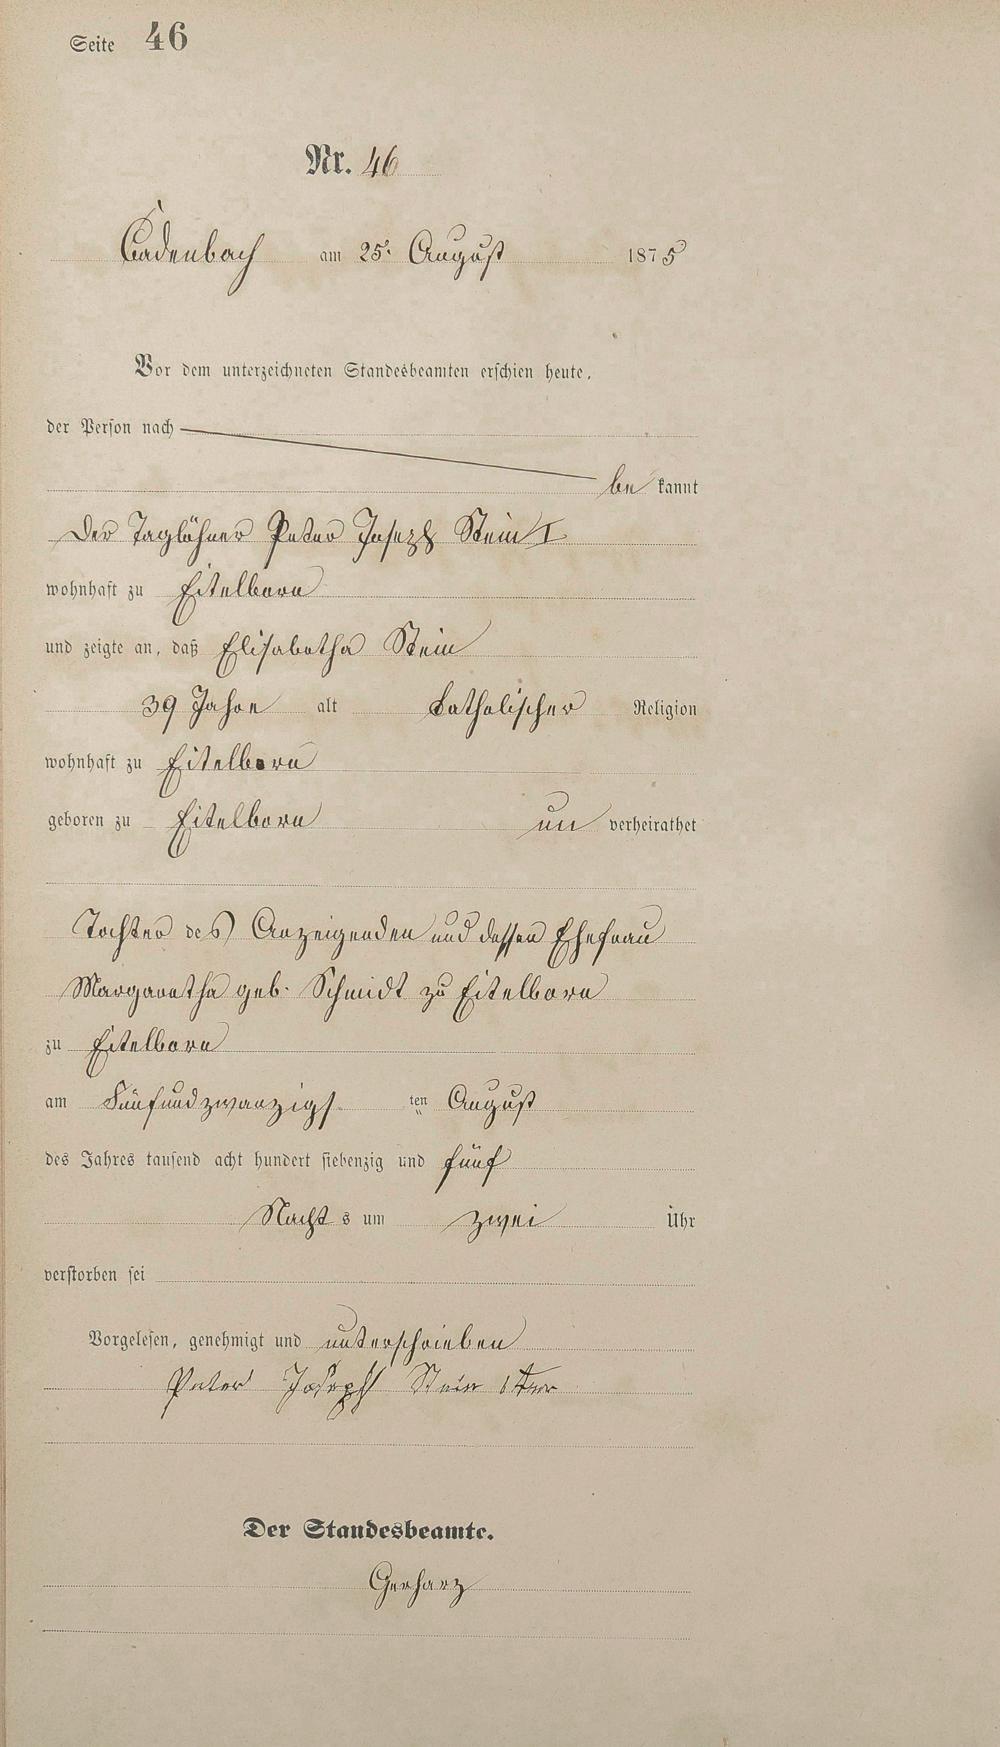 Seite 46
Nr. 46
Cadenbach am 25. August 1875
Vor dem unterzeichneten Standesbeamten erschien heute,
der Person nach
be kannt
Der Taglöhner Peter Joseph Stein I
wohnhaft zu Eitelborn
und zeigte an, daß Elisabetha Stein
39 Jahre alt katholischer Religion
wohnhaft zu Eitelborn
geboren zu Eitelborn un verheirathet
Tochter des Anzeigenden und dessen Ehefrau
Margaretha geb. Schmidt zu Eitelborn
zu Eitelborn
am Fünfundzwanzigs ten August
des Jahres tausend acht hundert siebenzig und fünf
Nacht s um zwei Uhr
verstorben sei
Vorgelesen, genehmigt und unterschrieben
Peter Joseph Stein 1ter
Der Standesbeamte.
Gerharz